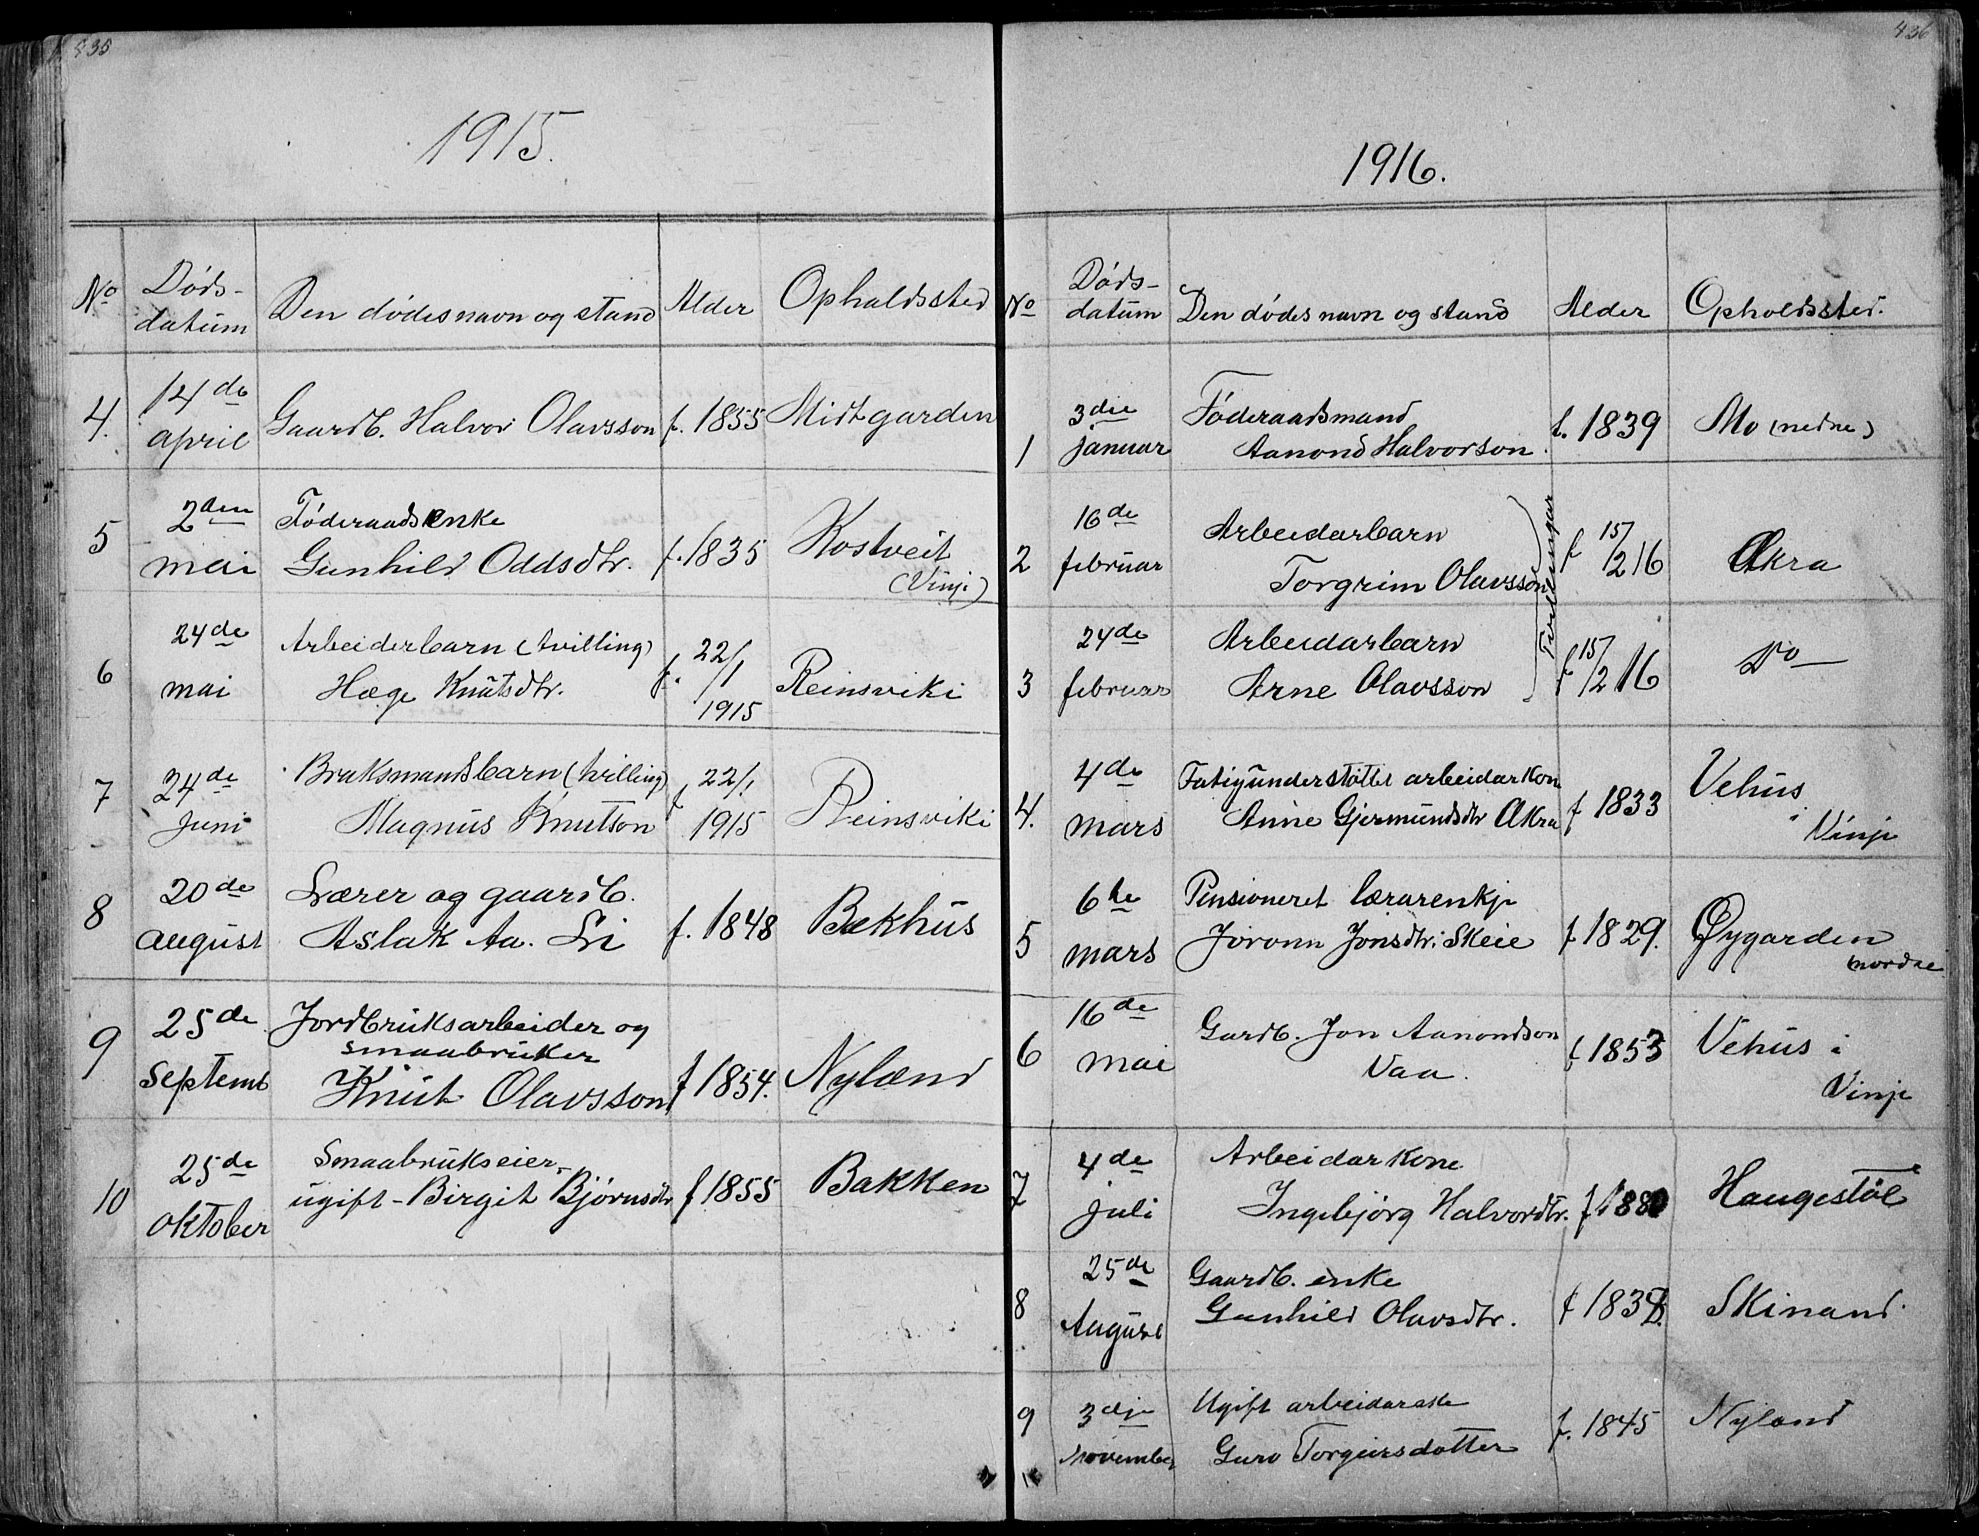 435
1915.
No Døds-datum Den dødes navn og stand Alder Opholdssted
4. 14de april Gaardb. Halvor Olavsson f. 1855 Midtgarden
5 2den mai Føderaadsenke
Gunhild Oddsdtr. f. 1835 Kostveit
(Vinje)
6 24de mai Arbeiderbarn (tvilling)
Hæge Knutsdtr. f. 22/1 1915 Reinsviki
7 24de juni Bruksmandsbarn (tvilling)
Magnus Knutson f 22/1 1915 Reinsviki
8 20de august Lærer og gaardb.
Aslak Aa. Li f. 1848 Bækhus
9 25de Septemb Jordbruksarbeider og
smaabruker
Knut Olavsson f 1854. Nyland
10 25de oktober Smaabrukseier,
ugift - Birgit Bjørnsdtr f 1855 Bakken
436
1916.
No Døds-datum Den dødes navn og stand Alder Opholdssted.
1 3die januar Føderaadsmand
Aanond Halvorson. f. 1839 Mo (nedre)
2 16de februar Arbeidarbarn
Torgrim Olavsson f 15/2 16 Økra
Tvillingar
3 24de februar Arbeidarbarn
Arne Olavsson f 15/2 16 Do
4. 4de mars Fatigunderstøttet arbeidarkone
Anne Gjermundsdtr Økra f 1833 Vehus
i Vinje
5 6te mars Pensioneret lærarenkje
Joronn Jonsdtr. Skeie f 1829. Øygarden
nordre
6 16de mai Gardb. Jon Aanondson
Vaa. f 1853 Vehus i
Vinje
7 4de juli Arbeidarkone
Ingebjørg Halvordtr. f 1880 Haugestøl
8 25de August Gaardb. enke
Gunhild Olavsdtr. f 1838. Skinand.
9 3dje November Ugift arbeidarske
Guro Torgeirsdotter f. 1845 Nyland